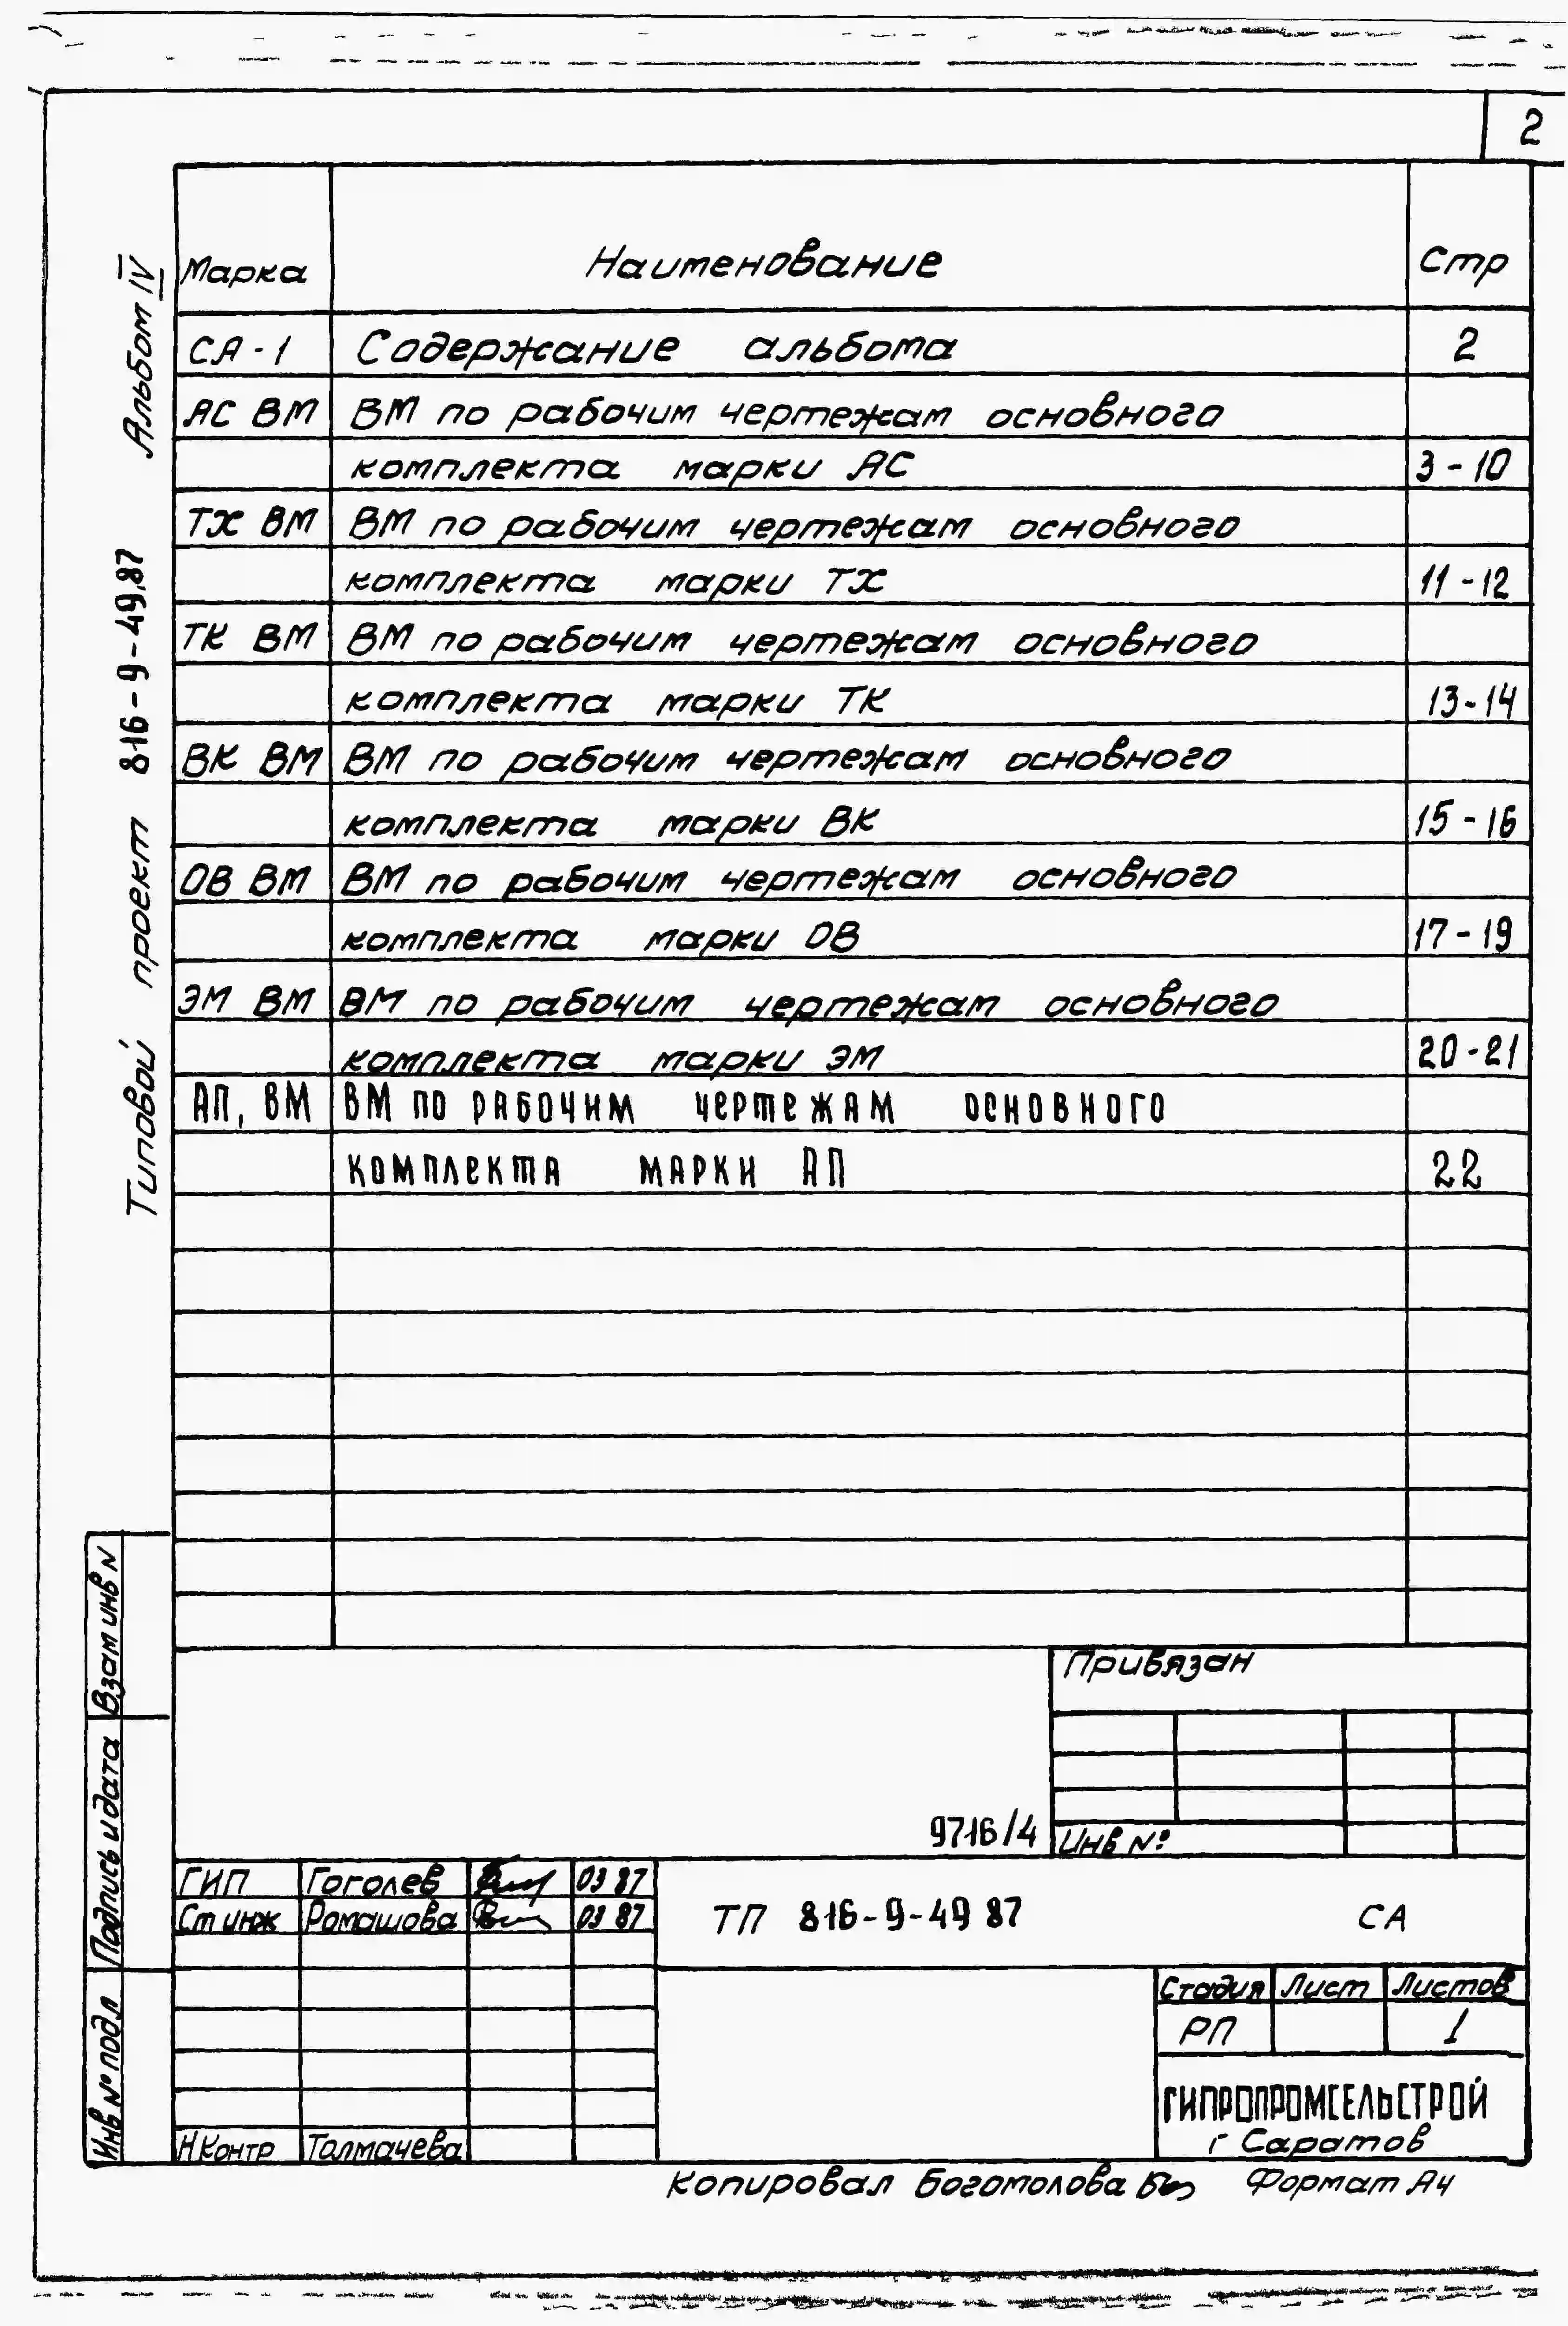 2
Марка Наименование Стр
СА-1 Содержание альбома 2
АС ВМ ВМ по рабочим чертежам основного
комплекта марки АС 3-10
ТХ ВМ ВМ по рабочим чертежам основного
комплекта марки ТХ 11-12
ТК ВМ ВМ по рабочим чертежам основного
комплекта марки ТК 13-14
ВК ВМ ВМ по рабочим чертежам основного
комплекта марки ВК 15-16
ОВ ВМ ВМ по рабочим чертежам основного
комплекта марки ОВ 17-19
ЭМ ВМ ВМ по рабочим чертежам основного
комплекта марки ЭМ 20-21
АП, ВМ ВМ ПО РАБОЧИМ ЧЕРТЕЖАМ ОСНОВНОГО
КОМПЛЕКТА МАРКИ АП 22
Типовой проект 816-9-49.87 Альбом IV
Взам инв N
Подпись и дата
Инв № подл
Привязан
9716/4
Инв №
ГИП Гоголев 03 87
Ст инж Ромашова 03 87
Н Контр Толмачева
ТП 816-9-49 87 СА
Стадия Лист Листов
РП 1
ГИПРОПРОМСЕЛЬСТРОЙ
г Саратов
Копировал Богомолова Формат А4